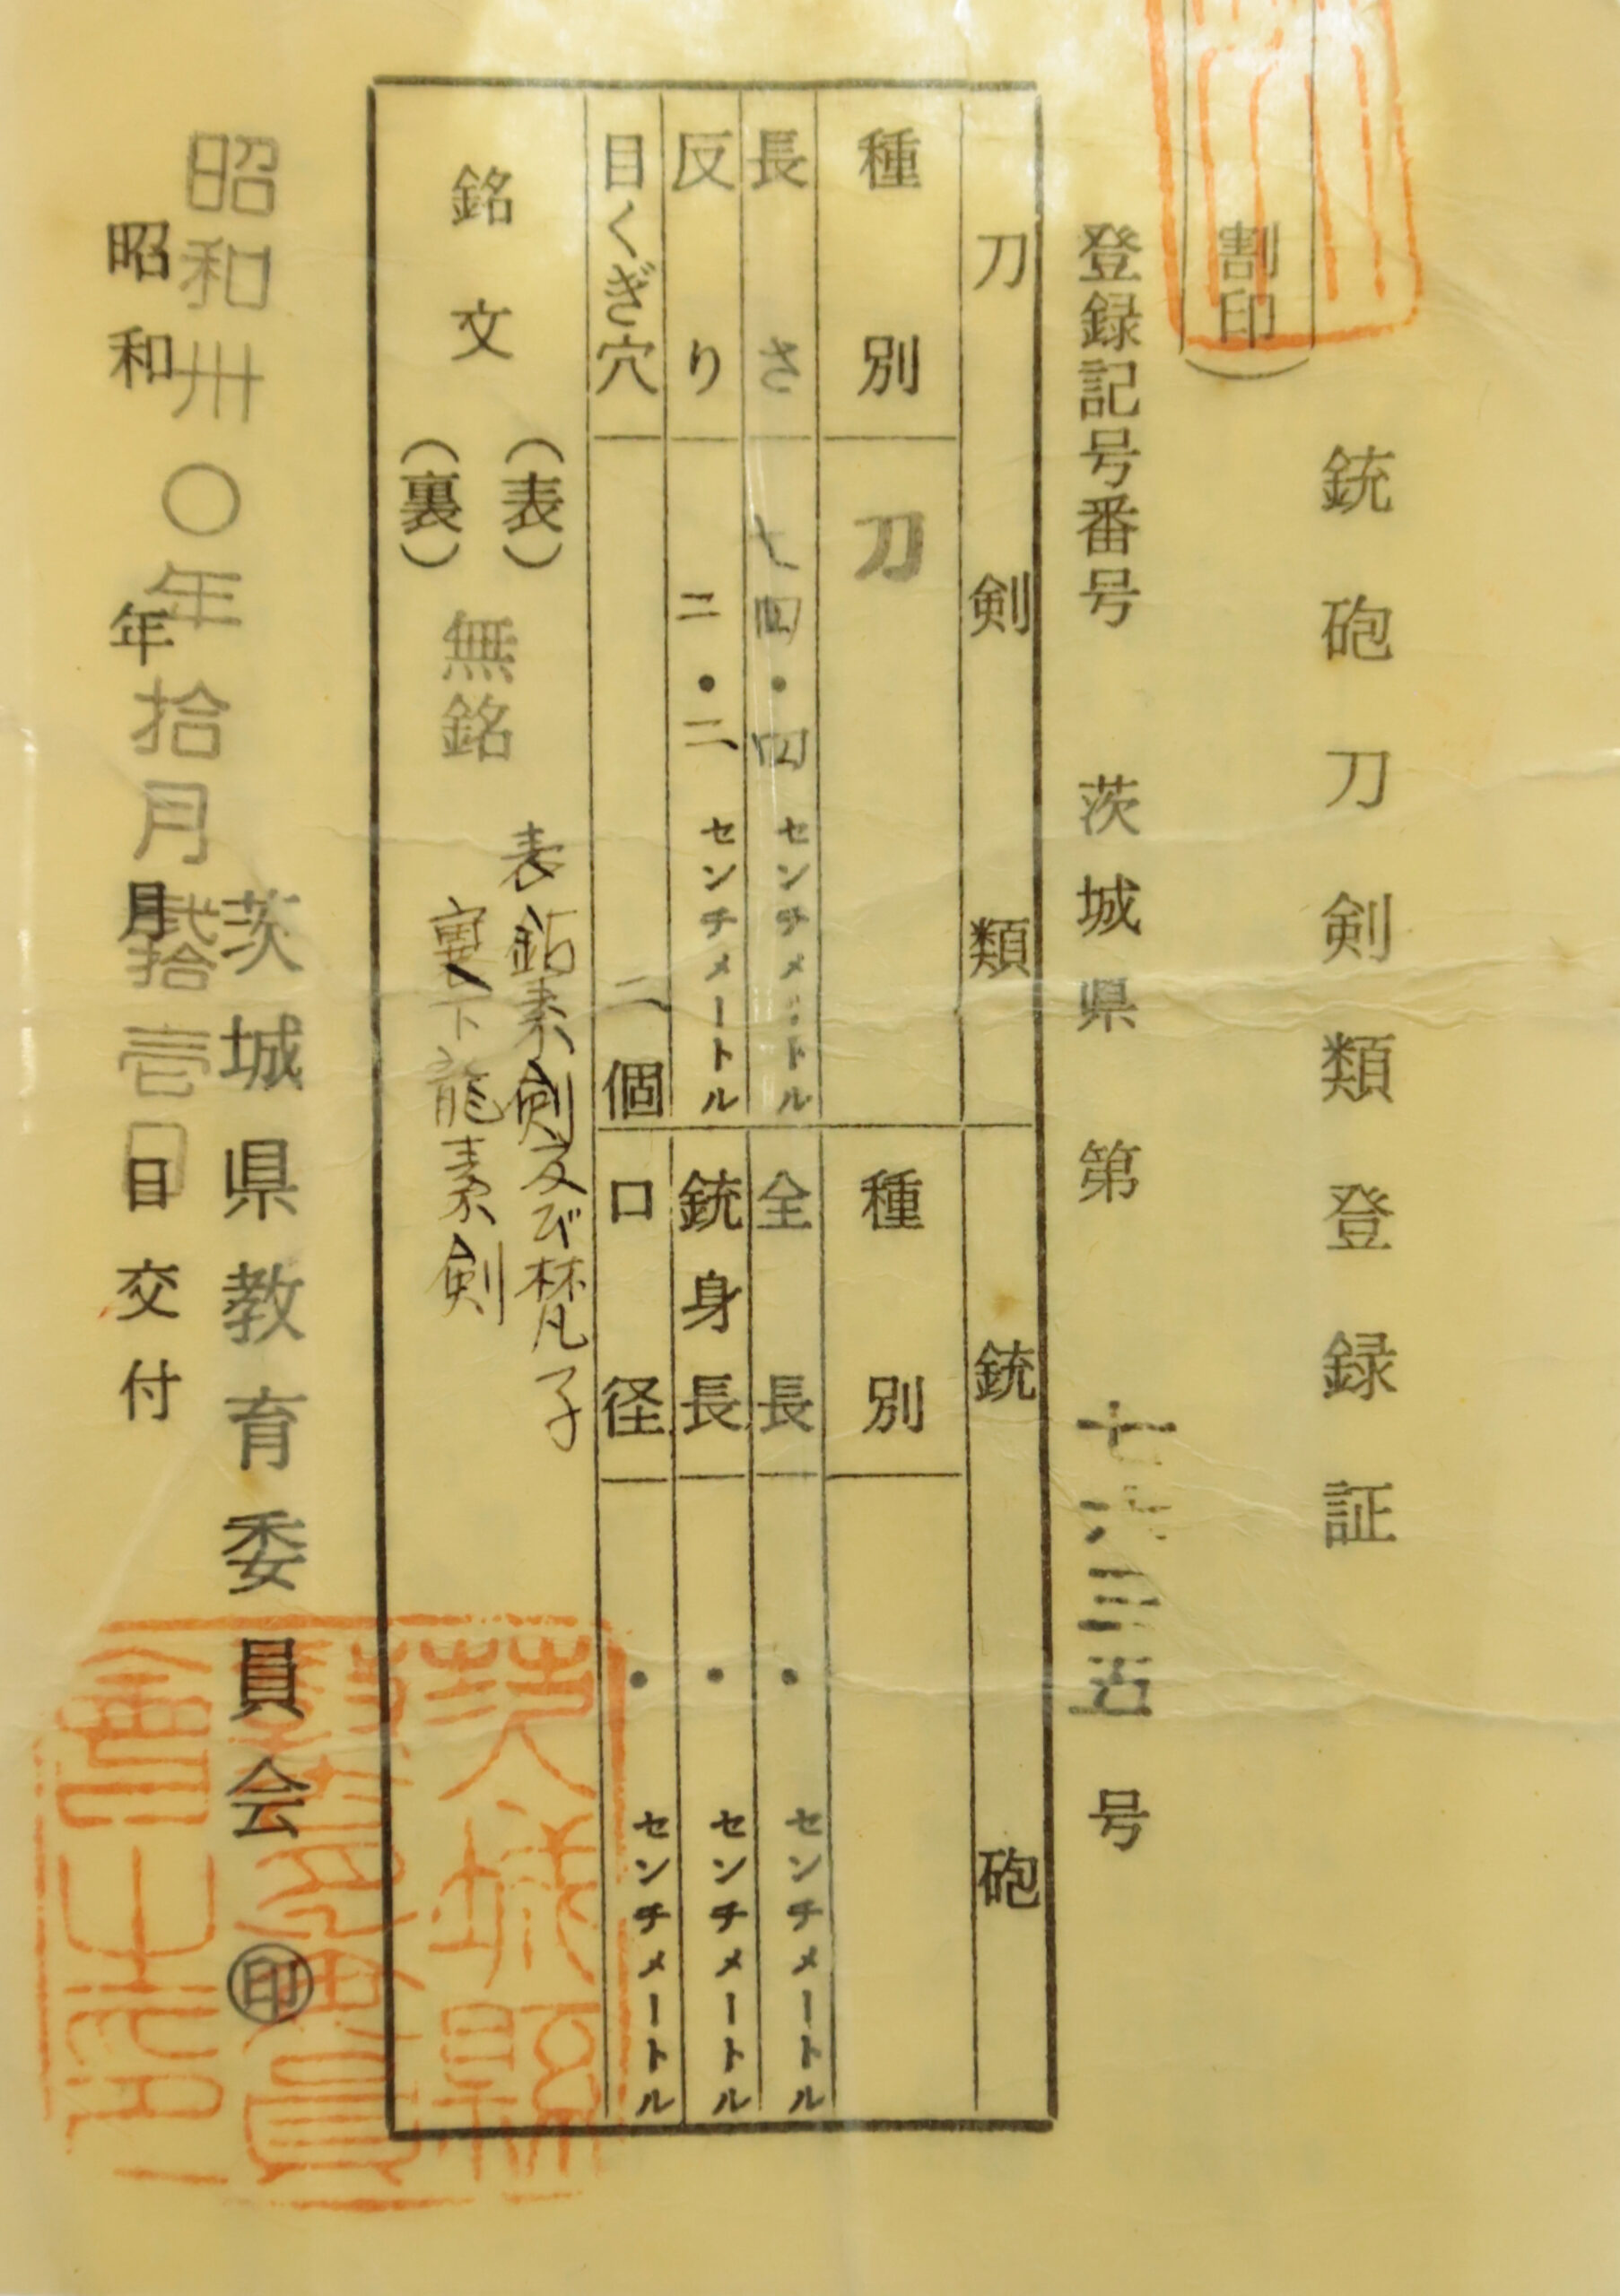 銃砲刀剣類登録証
（割印）
登録記号番号 茨城県 第 七六三五 号
刀剣類
種別 刀
長さ 七四・四 センチメートル
反り 二・二 センチメートル
目くぎ穴 二 個
銃砲
種別
全長 ・ センチメートル
銃身長 ・ センチメートル
口径 ・ センチメートル
銘文 （表）
（裏）
無銘
表 素剣及び梵子
裏 下龍素剣
茨城県教育委員会 ㊞
昭和卅〇年拾月弐拾壱日
昭和 年 月 日交付
茨城縣
教育委員
會之印